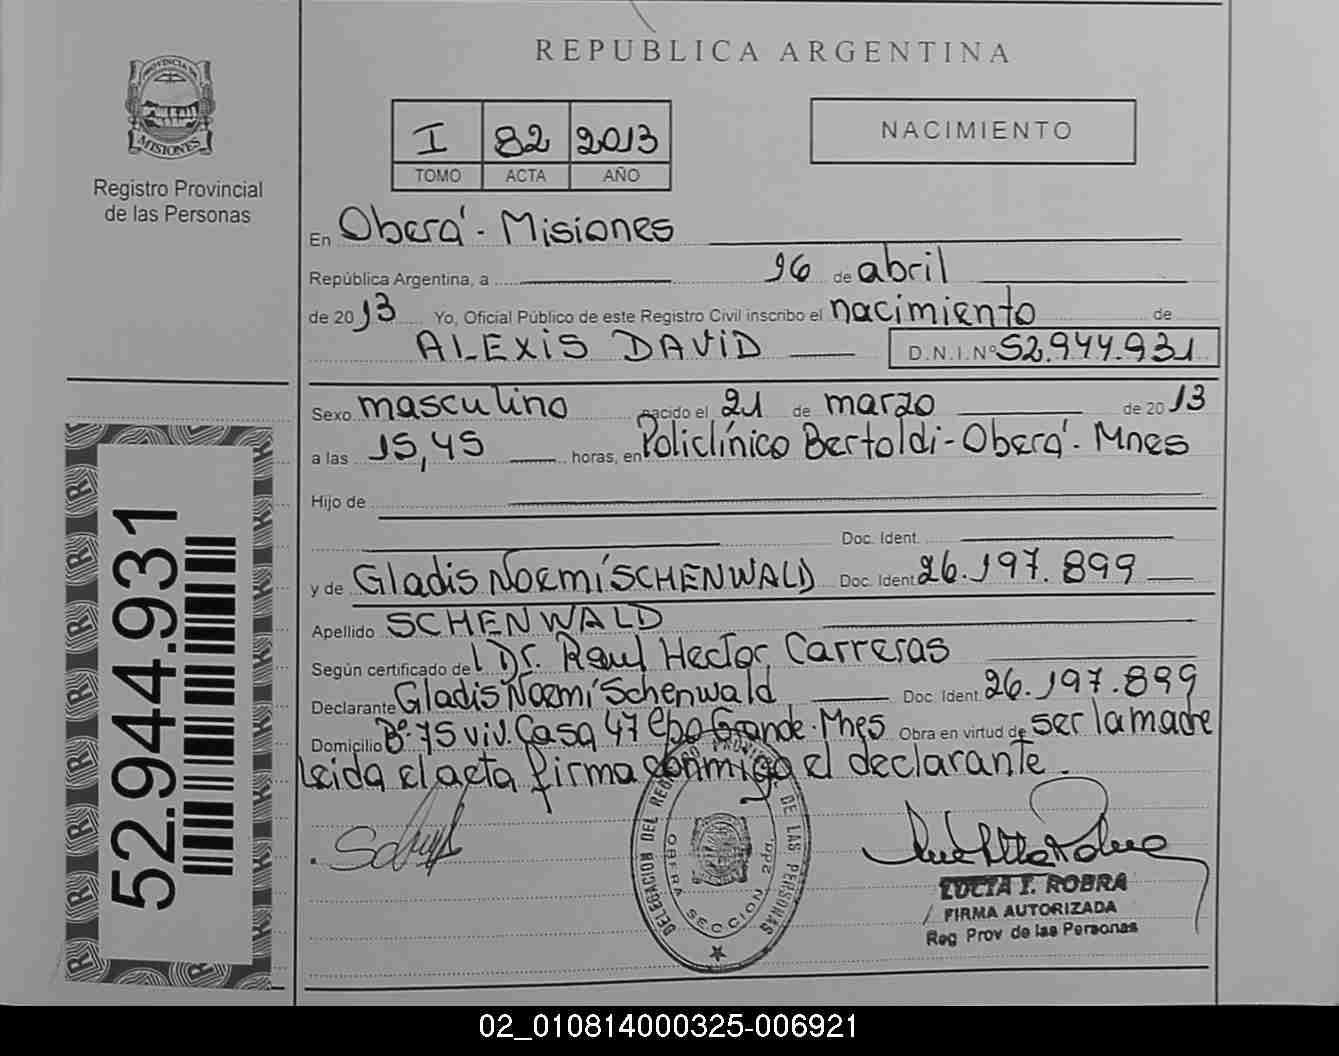 REPUBLICA ARGENTINA
PROVINCIA DE
MISIONES
Registro Provincial
de las Personas
I 82 2013
TOMO ACTA AÑO
NACIMIENTO
En Oberá - Misiones
República Argentina, a 16 de abril
de 2013 Yo, Oficial Público de este Registro Civil inscribo el nacimiento de
ALEXIS DAVID D.N.I.Nº 52.944.931
Sexo masculino nacido el 21 de marzo de 2013
a las 15,45 horas, en Policlínico Bertoldi - Oberá - Mnes
Hijo de
Doc. Ident.
y de Gladis Noemí SCHENWALD Doc. Ident. 26.197.899
Apellido SCHENWALD
Según certificado de Dr. Raul Hector Carreras
Declarante Gladis Noemí Schenwald Doc. Ident. 26.197.899
Domicilio Bº 75 viv. Casa 47 Cpo Grande - Mnes Obra en virtud de ser la madre
Leida el acta, firma conmigo el declarante.
52.944.931
DELEGACION DEL REGISTRO PROVINCIAL DE LAS PERSONAS
OBERA SECCION 2da.
LUCIA I. ROBRA
FIRMA AUTORIZADA
Reg Prov de las Personas
02_010814000325-006921